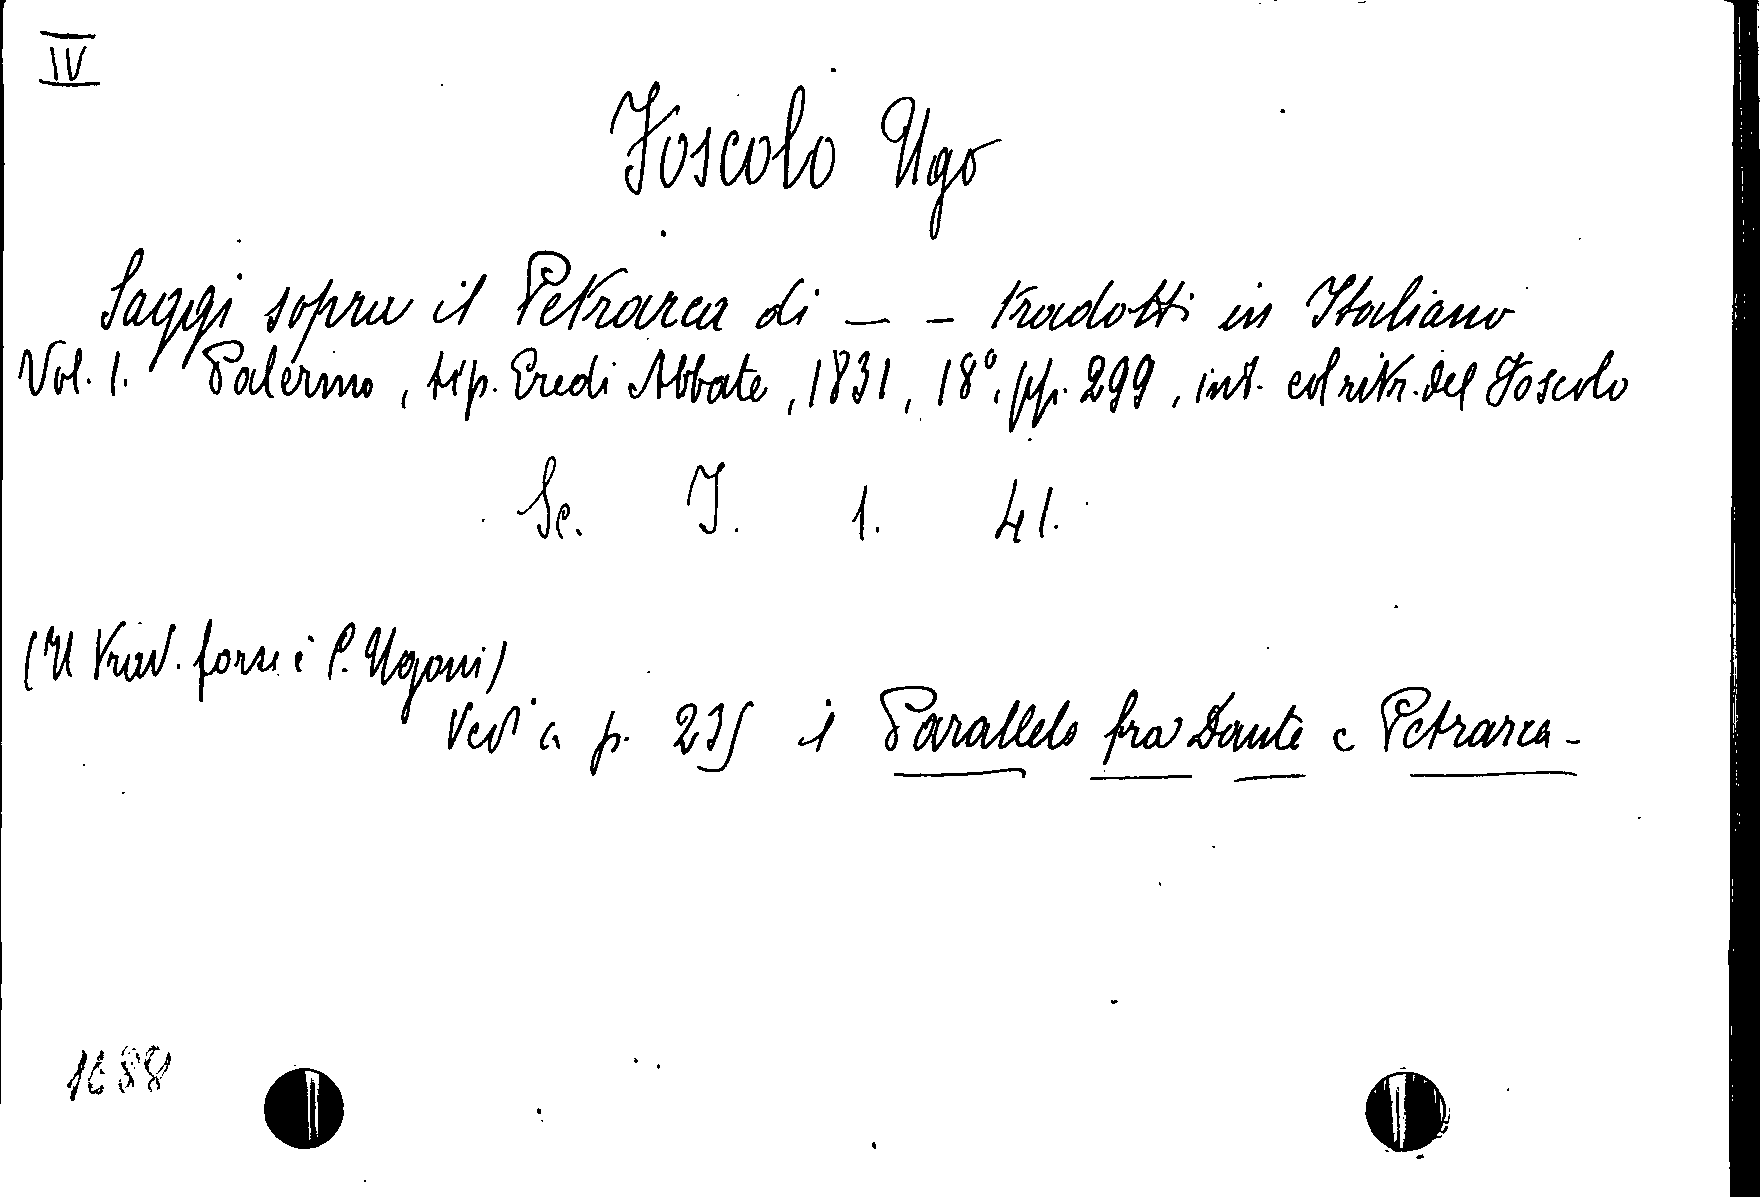 IV
Foscolo Ugo
Saggi sopra il Petrarca di _ _ tradotti in Italiano
Vol. 1. Palermo, tip. Eredi Abbate, 1831, 18°. pp. 299, int. col ritr. del Foscolo
Sc. I. 1. 41.
(Il trad. forse è C. Ugoni)
Vedi a p. 235 il Parallelo fra Dante e Petrarca -
1688